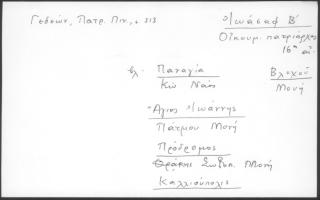 Γεδεών, Πατρ. Πιν., σ 513
Ἰωάσαφ Β΄
Οἰκουμ. πατριάρχης
16ο αἰ.
βλ. Παναγία
Κῶ Ναός
Βλαχοῦ
Μονή
Ἅγιος Ἰωάννης
Πάτμου Μονή
Πρόδρομος
Θράκης Σωζοπ. Μονή
Καλλιούπολις